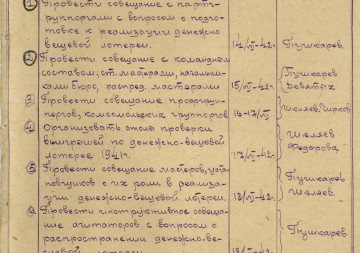 1) Провести совещание с парт-
группоргами с вопросом о подго-
товке к реализации денежно
вещевой лотереи. 14/VI-42г. Пушкарев
2) Провести совещание с командным
составом; ст. мастерами, начальни-
ками бюро, распред. мастерами 15/VI-42г. Пушкарев Девятых
3) Провести совещание профгруп-
поргов, комсомольских группоргов 16-17/VI
4) Организовать стол проверки
выигрышей по денежно-вещевой
лотерее 1941г. 17/VI-42г. Шкляев Федорова
5) Провести совещание мастеров, уста-
новщиков о их роли в реализа-
ции денежно-вещевой лотереи. 18/VI-42г. Пушкарев Шкляев.
6) Провести инструктивное совеща-
ние агитаторов с вопросом о
распространении денежно-ве-
щевой лотереи 18/VI-42г. Пушкарев